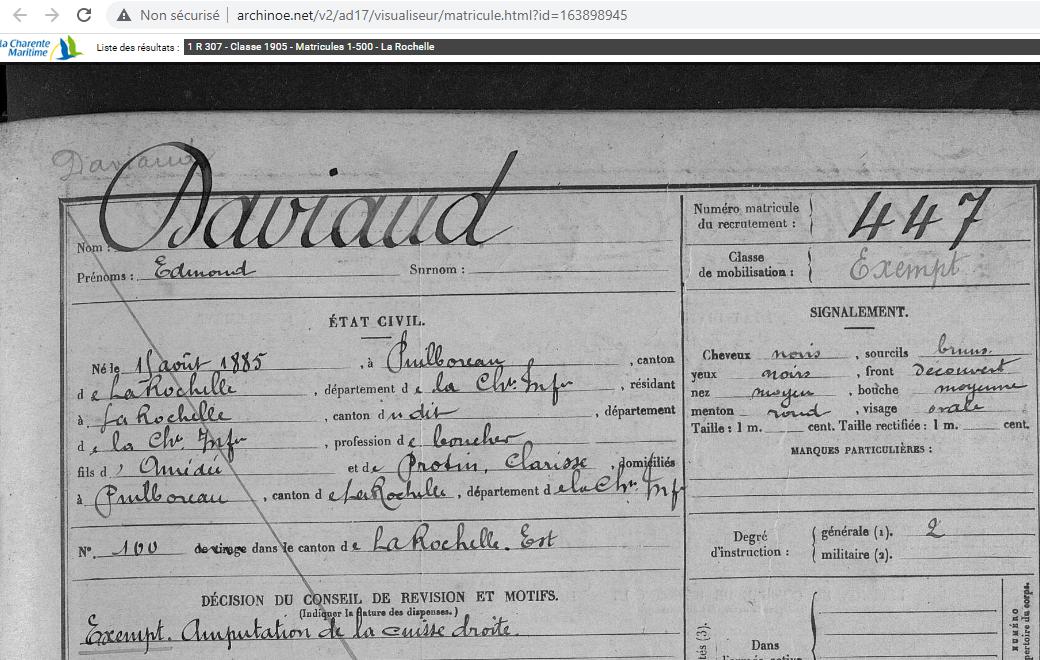 Non sécurisé | archinoe.net/v2/ad17/visualiseur/matricule.html?id=163898945
la Charente Maritime
Liste des résultats : 1 R 307 - Classe 1905 - Matricules 1-500 - La Rochelle
Daviaud
Nom : Daviaud
Prénoms : Edmond Surnom :
Numéro matricule du recrutement : 447
Classe de mobilisation : Exempt
ÉTAT CIVIL.
Né le août 1885, à Puilboreau, canton
de La Rochelle, département de la Chte Infre, résidant
à La Rochelle, canton du dit, département
de la Chte Infre, profession de boucher
fils d' Amédée et de Protin, Clarisse, domiciliés
à Puilboreau, canton de La Rochelle, département de la Chte Infre
No. 100 de tirage dans le canton de La Rochelle. Est
DÉCISION DU CONSEIL DE REVISION ET MOTIFS.
(Indiquer la nature des dispenses.)
Exempt. Amputation de la cuisse droite.
SIGNALEMENT.
Cheveux noirs, sourcils bruns
yeux noirs, front Découvert
nez moyen, bouche moyenne
menton rond, visage ovale
Taille : 1 m. cent. Taille rectifiée : 1 m. cent.
MARQUES PARTICULIÈRES :
Degré d'instruction : générale (1). 2
militaire (2).
Dans
tés (3).
NUMÉRO
pertoire du corps.